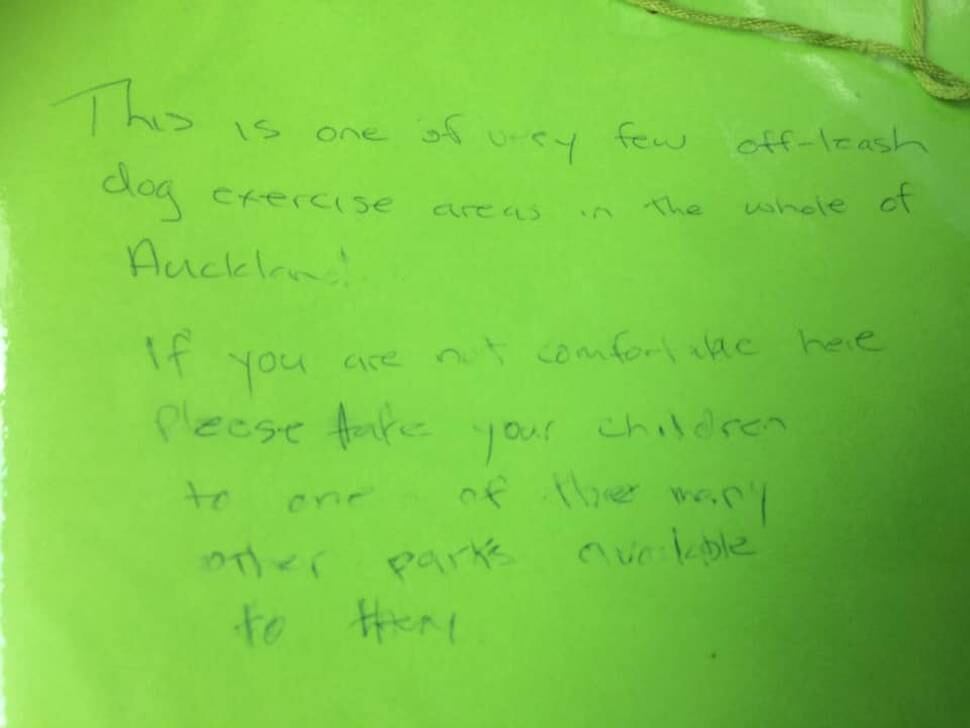 This is one of very few off-leash
dog exercise areas in the whole of
Auckland!
If you are not comfortable here
please take your children
to one of the many
other parks available
to them